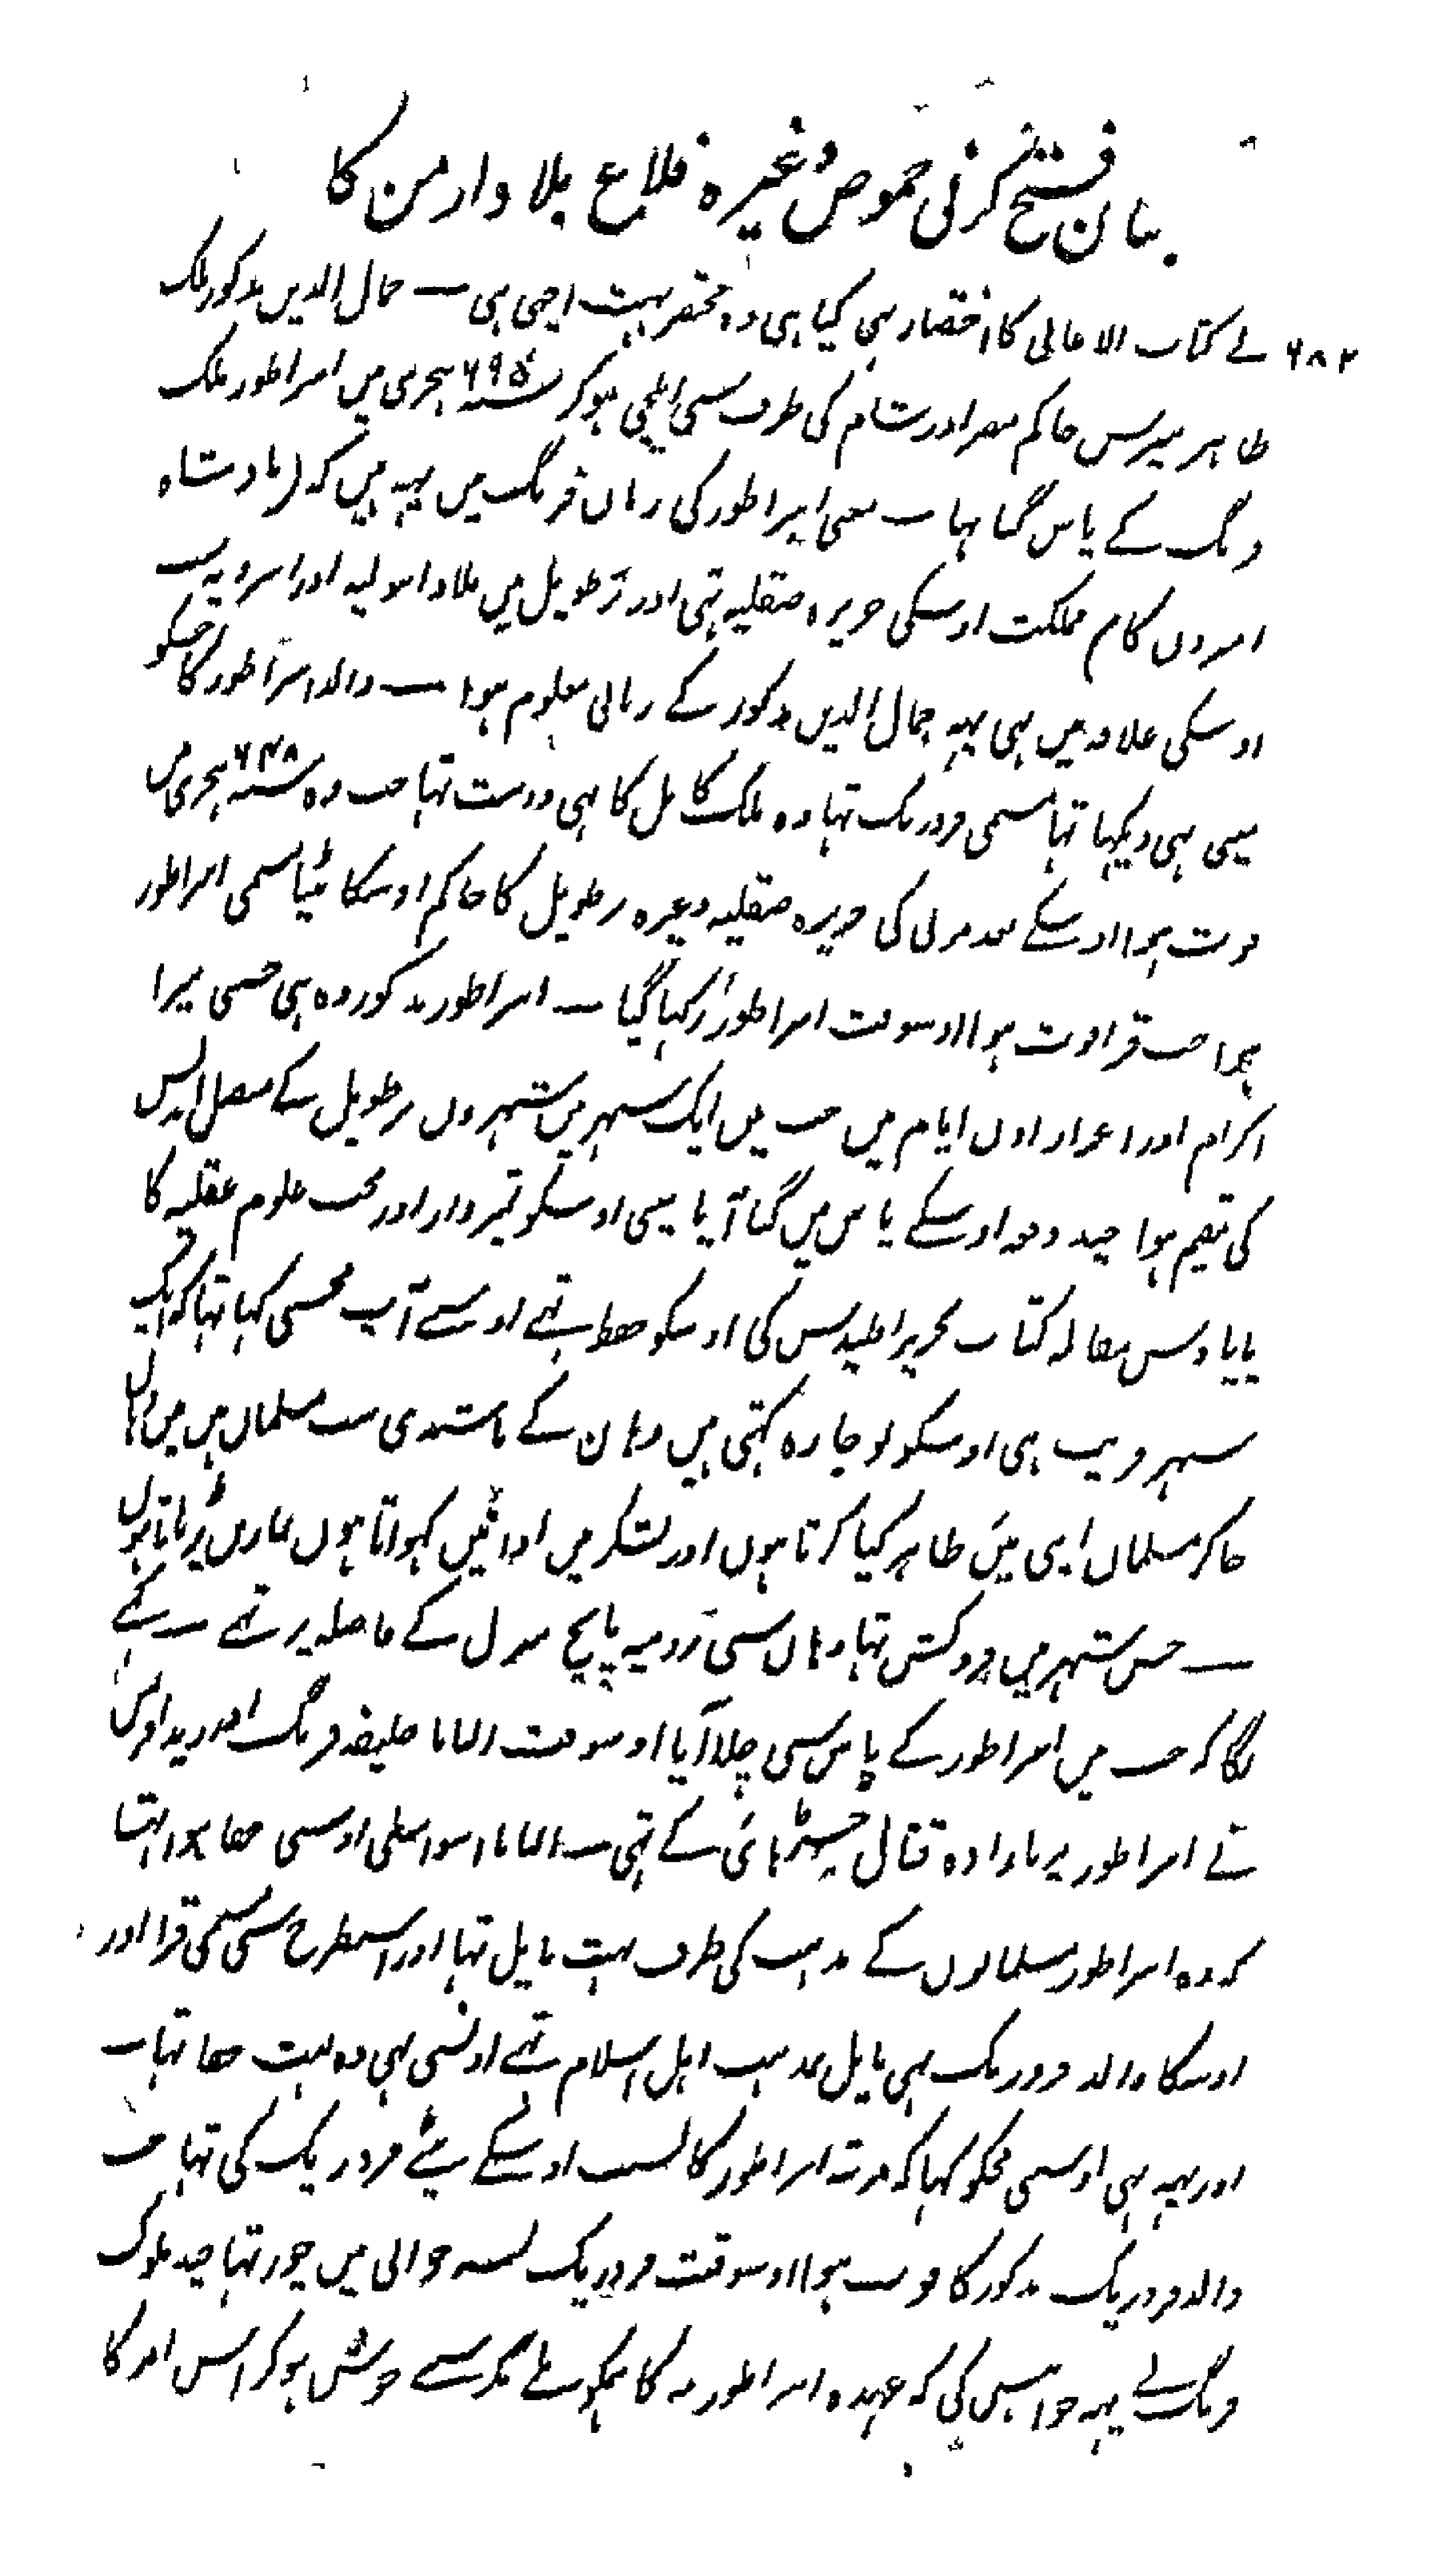 بیان فتح کرنی حموص وغیرہ قلاع بلاد ارمن کا
۶۸۲
نے کتاب الاغانی کا اختصار بہی کیا ہی وہ مختصر بہت اچہی ہی — جمال الدین مذکور ملک
ظاہر بیبرس حاکم مصر اور شام کی طرف سی ایلچی ہوکر سنہ ۶۹۵ ہجری میں امبراطور ملک
فرنگ کے پاس گیا تہا — معنی امبراطور کی زبان فرنگ میں یہہ ہیں کہ (بادشاہ
امیروں کا) مملکت اوسکی جزیرہ صقلیہ تہی اور بر طویل میں بلاد انبولیہ اور انبردیہ —
اوسکی علاقہ میں ہی یہہ جمال الدین مذکور کے زبانی معلوم ہوا — والد امبراطور کا جسکو
مینی بہی دیکہا تہا مسمی فردریک تہا وہ ملک کامل کا بہی دوست تہا جب وہ سنہ ۶۴۸ ہجری میں
فوت ہوا اوسکے بعد مرنی کی جزیرہ صقلیہ وغیرہ بر طویل کا حاکم اوسکا بیٹا مسمی امبراطور
ہوا جب قرا فوت ہوا اوسوقت امبراطور کہا گیا — امبراطور مذکور وہ ہی جسی میرا
اکرام اور اعزاز اون ایام میں جب میں ایک شہر میں شہروں بر طویل کے متصل اندلس
کی مقیم ہوا چند دفعہ اوسکے پاس میں گیا آیا مینی اوسکو تمیزدار اور محب علوم عقلیہ کا
پایا دس مقالہ کتاب تحریر اقلیدس کی اوسکو حفظ تہے اوسنے آپ مجھسی کہا تہا کہ ایک
شہر قریب ہی اوسکو لوجارہ کہتی ہیں وہان کے باشندی سب مسلمان ہیں میں وہاں
جاکر مسلمان اپنی تئیں ظاہر کیا کرتا ہوں اور لشکر میں اذانیں کہواتا ہوں نمازیں پڑہاتا ہوں
— جس شہر میں فروکش تہا وہاں سی رومیہ پانچ منزل کے فاصلہ پر تہے — کہنے
لگا کہ جب میں امبراطور کے پاس سی چلا آیا اوسوقت البابا خلیفہ فرنگ اور ریدافرنس
نے امبراطور پر بارادہ قتال چڑہائی کے تہی — البابا اسواسطی اوسسی خفا ہوا تہا
کہ وہ امبراطور مسلمانوں کے مذہب کی طرف بہت مایل تہا اور اسیطرح سی مسمی قرا اور
اوسکا والد فردریک بہی مایل مذہب اہل اسلام تہے اونسی بہی وہ بہت خفا تہا —
اور یہہ بہی اوسی مجکو کہا کہ مرتبہ امبراطور کا نسبت اوسکے بیٹے فردریک کی تہا جب
والد فردریک مذکور کا فوت ہوا اوسوقت فردریک نسبہ جوانی میں چور تہا چند ملوک
فرنگ نے یہہ خواہش کی کہ عہدہ امبراطوریہ کا ہمکو ملے مگر سے خوش ہوکر اس امر کا